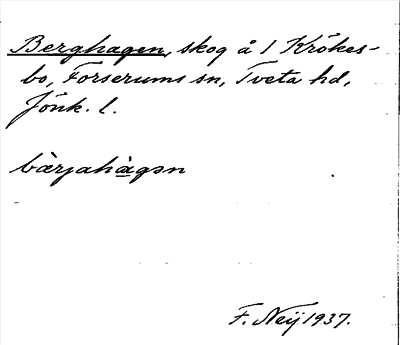 Berghagen, skog å 1 Krökes-
bo, Forserums sn, Tveta hd,
Jönk. l.
bærjahàgən
F. Neij 1937.